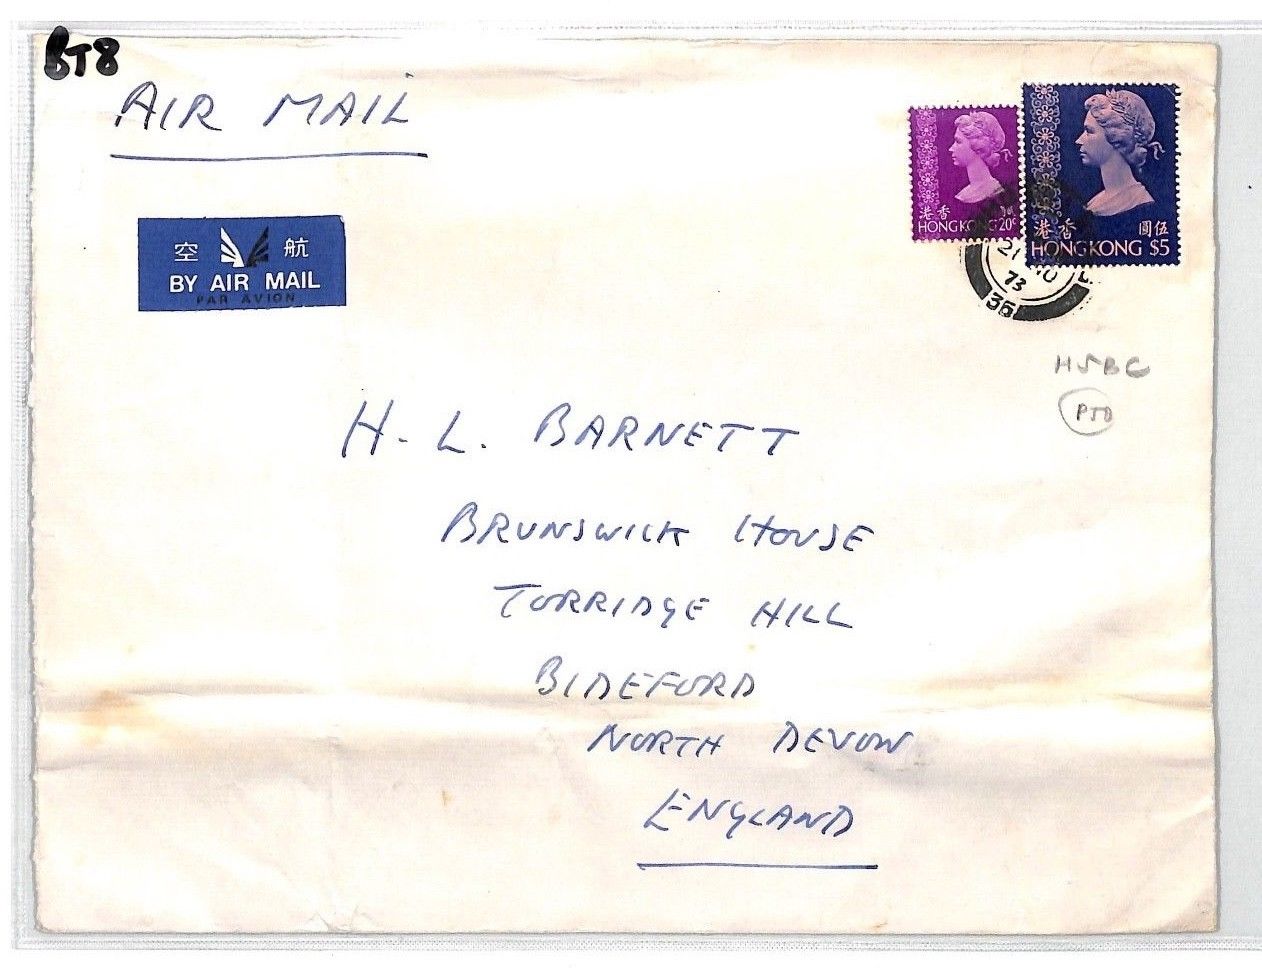 BT8
AIR MAIL
空 航
BY AIR MAIL
PAR AVION
港 香
HONG KONG 20c
港 香 圓伍
HONG KONG $5
21
73
36
HSBC
PTO
H. L. BARNETT
BRUNSWICK HOUSE
TORRIDGE HILL
BIDEFORD
NORTH DEVON
ENGLAND